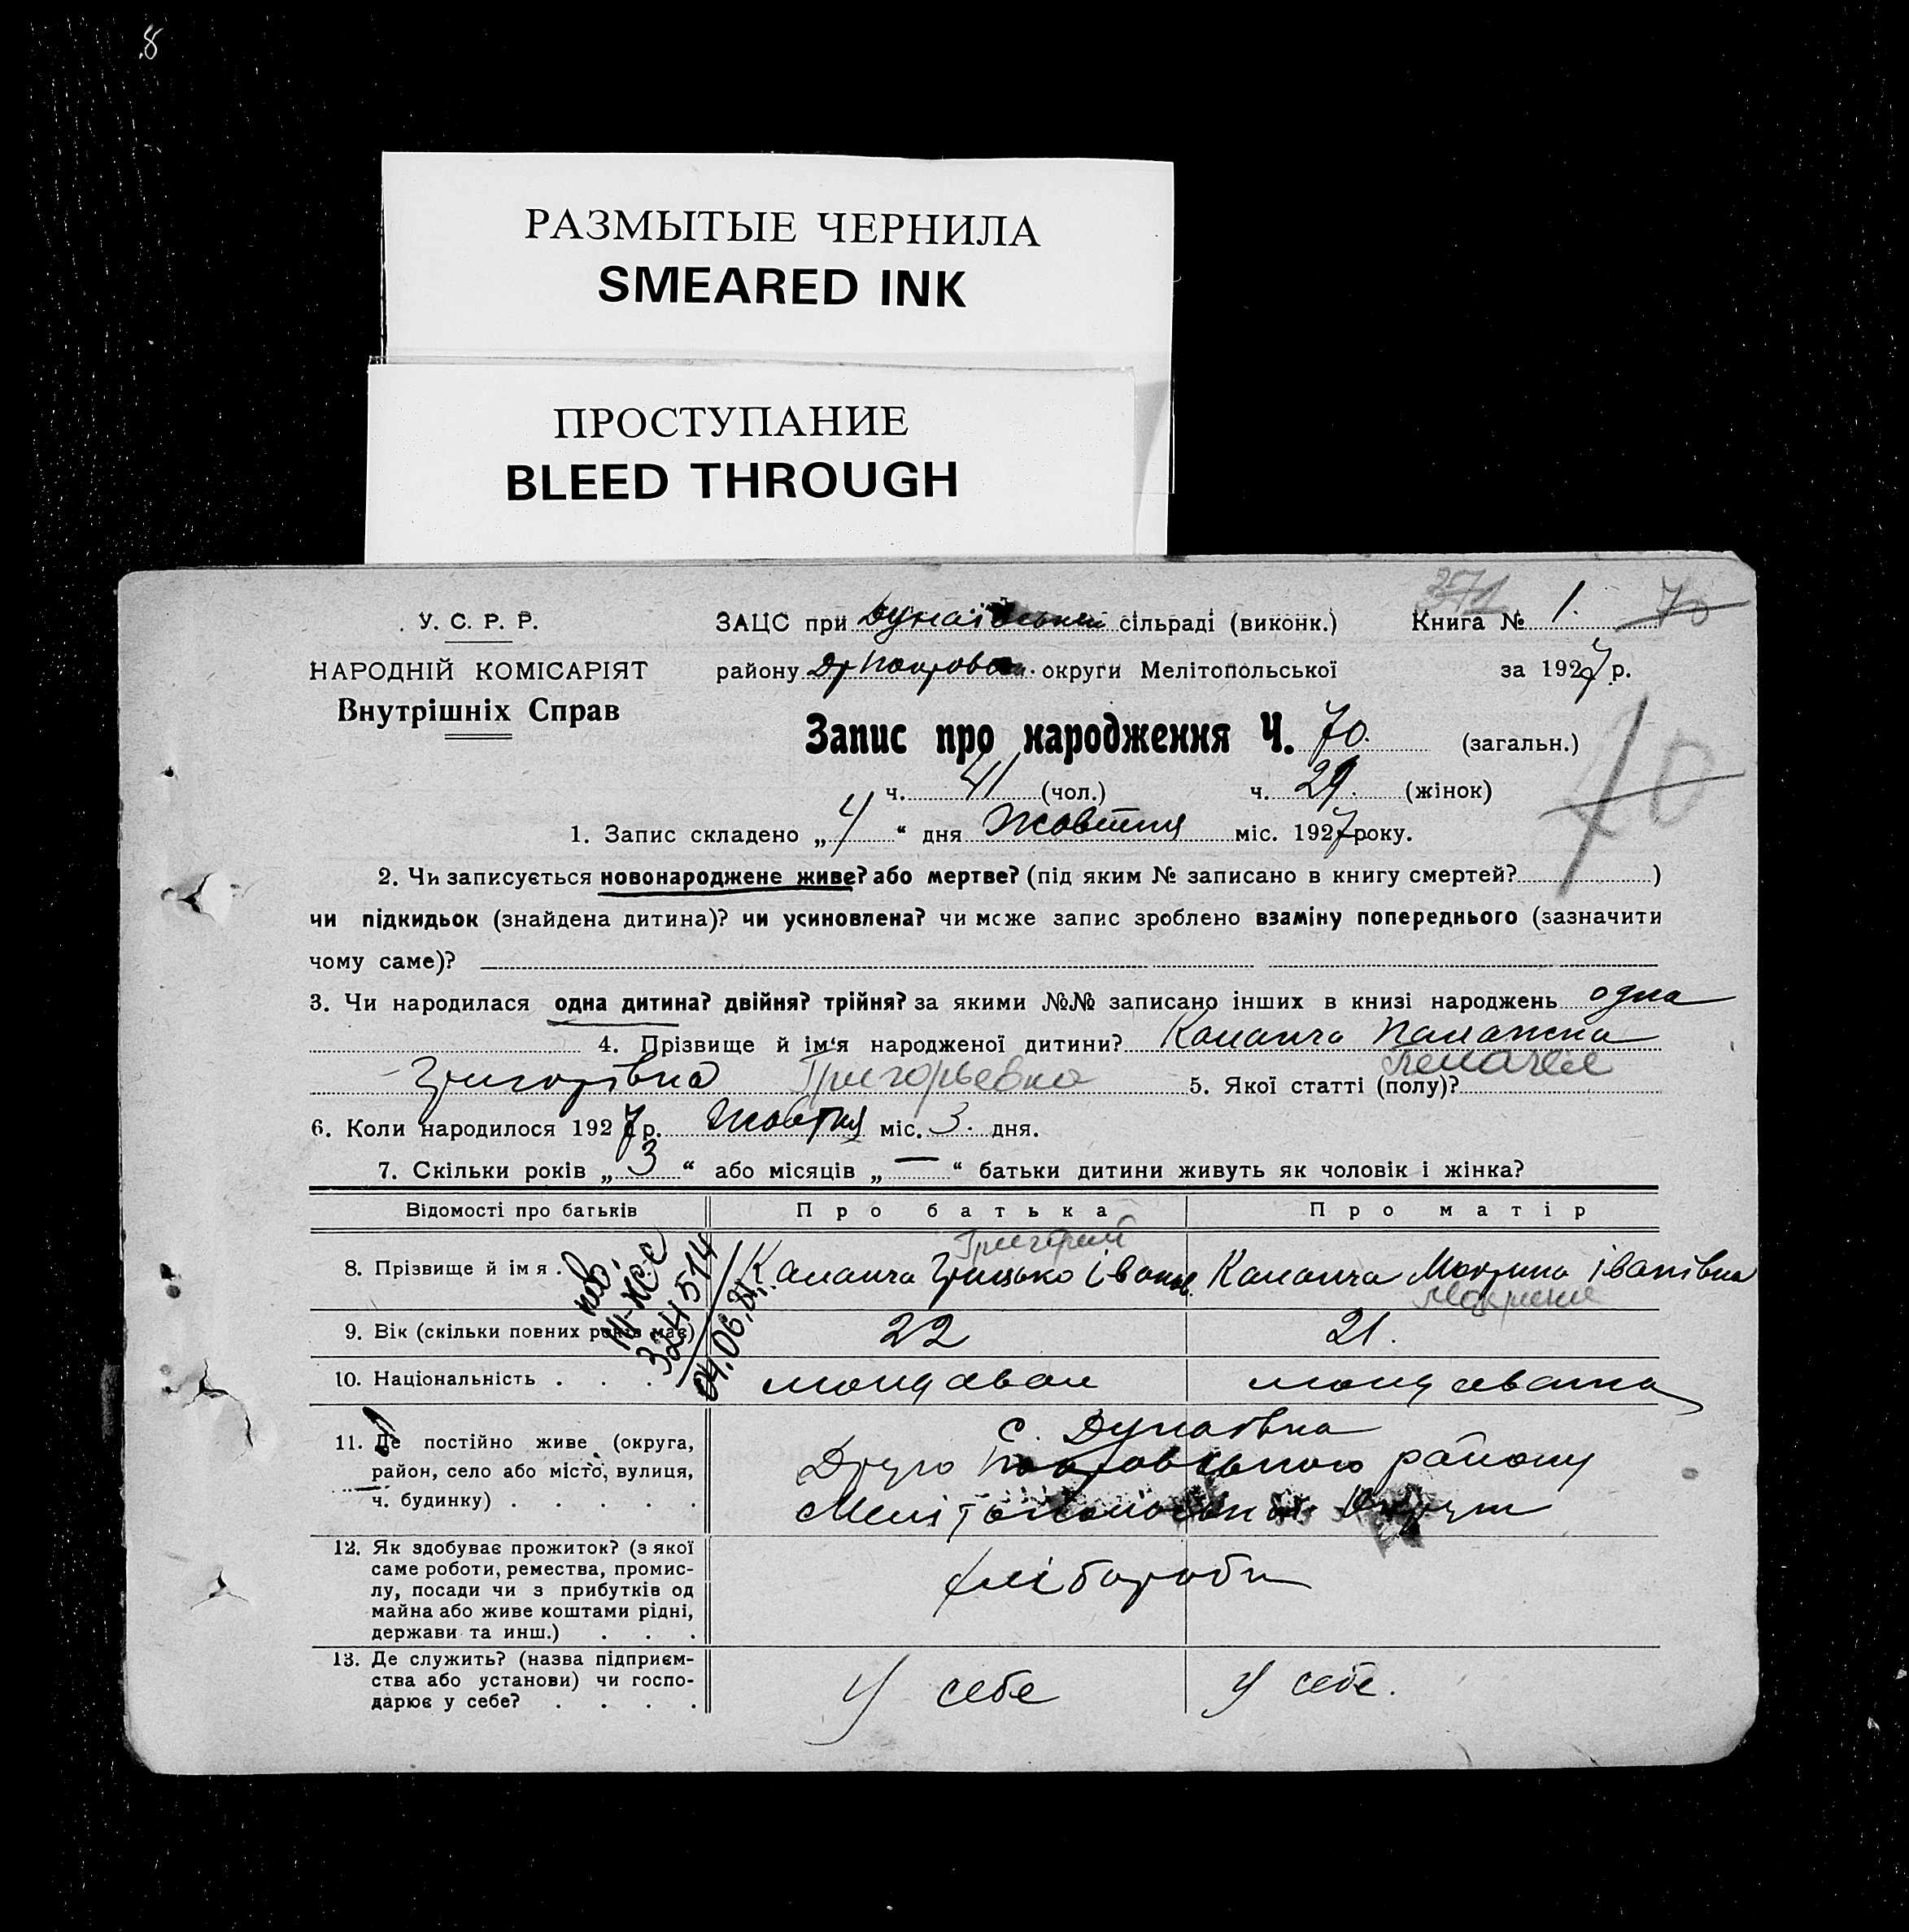 8
РАЗМЫТЫЕ ЧЕРНИЛА
SMEARED INK
ПРОСТУПАНИЕ
BLEED THROUGH
371
У. С. Р. Р. ЗАЦС при Дунаївській сільраді (виконк.) Книга № 1. 70
НАРОДНІЙ КОМІСАРІЯТ району Др Покровськ. округи Мелітопольської за 1927 р.
Внутрішніх Справ
Запис про народження Ч. 70. (загальн.)
ч. 41 (чол.) ч. 29. (жінок)
70
1. Запис складено „4“ дня Жовтня міс. 1927 року.
2. Чи записується новонароджене живе? або мертве? (під яким № записано в книгу смертей? )
чи підкидьок (знайдена дитина)? чи усиновлена? чи може запис зроблено взаміну попереднього (зазначити
чому саме)?
3. Чи народилася одна дитина? двійня? трійня? за якими №№ записано інших в книзі народжень одна
4. Прізвище й ім‘я народженої дитини? Каланча Палажка
Пелагея
Григорівна Григорьевна 5. Якої статті (полу)?
6. Коли народилося 1927 р. Жовтня міс. 3. дня.
7. Скільки років „3“ або місяців „—“ батьки дитини живуть як чоловік і жінка?
Відомості про батьків Про батька Про матір
Григорий
8. Прізвище й імя . Каланча Грицько Іванов. Каланча Мокрина Іванівна
324514
04.06.81г.
9. Вік (скільки повних років має) 22 21.
10. Національність . . . молдаван молдаванка
11. Де постійно живе (округа, район, село або місто, вулиця, ч. будинку) . . . . .
с. Дунаївка
Друго Покровського району
Мелітопольської Округи
12. Як здобуває прожиток? (з якої
саме роботи, ремества, промис-
лу, посади чи з прибутків од
майна або живе коштами рідні,
держави та инш.) . . .
хлібороби
13. Де служить? (назва підприєм-
ства або установи) чи госпо-
дарює у себе? . . . .
У себе У себе.